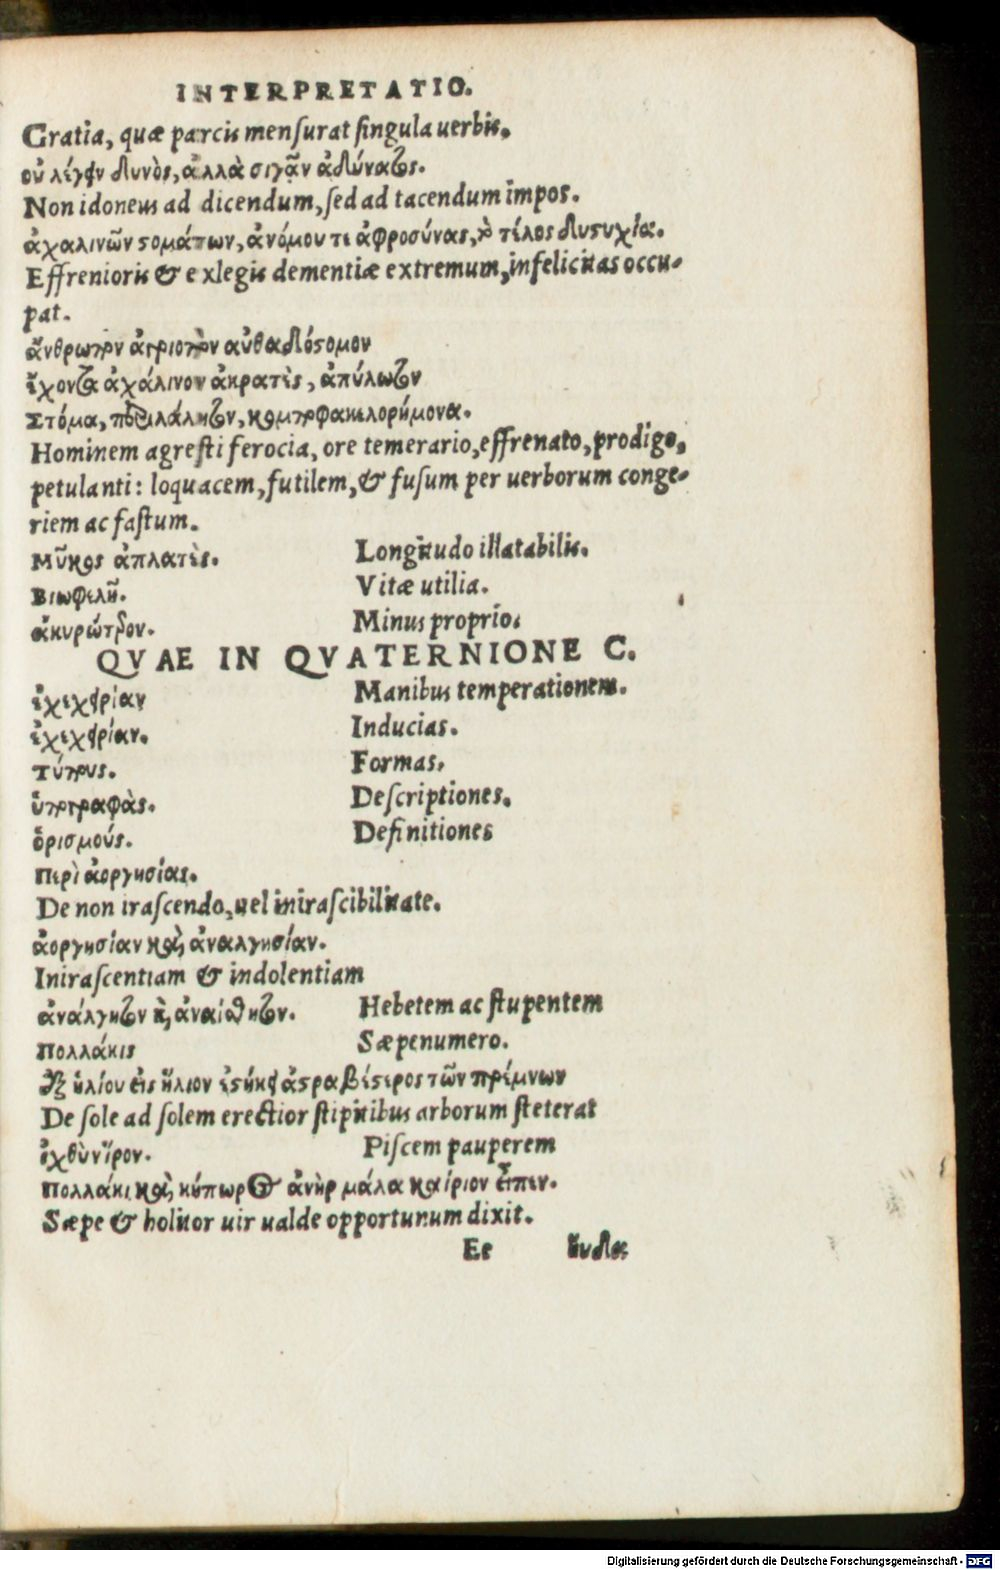 INTERPRETATIO.
Gratia, quæ parcis mensurat singula uerbis.
οὐ λέγειν δυνὸς, ἀλλὰ σιγᾶν ἀδύνατος.
Non idoneus ad dicendum, sed ad tacendum impos.
ἀχαλινῶν στομάτων, ἀνόμου τε ἀφροσύνας, τὸ τέλος δυστυχία.
Effrenioris & exlegis dementiæ extremum, infelicitas occu-
pat.
ἄνθρωπον ἀγριοποιὸν αὐθαδόστομον
ἔχοντα ἀχάλινον ἀκρατὲς, ἀπύλωτον
Στόμα, περιλάλητον, κομποφακελορήμονα.
Hominem agresti ferocia, ore temerario, effrenato, prodigo,
petulanti: loquacem, futilem, & fusum per uerborum conge-
riem ac fastum.
Μῆκος ἀπλατὲς. Longitudo illatabilis.
Βιωφελῆ. Vitæ utilia.
ἀκυρώτερον. Minus proprio.
QVAE IN QVATERNIONE C.
ἐχεχειρίαν Manibus temperationem.
ἐχεχειρίαν. Inducias.
Τύπους. Formas.
ὑπογραφὰς. Descriptiones.
ὁρισμούς. Definitiones
Περὶ ἀοργησίας.
De non irascendo, uel inirascibilitate.
ἀοργησίαν καὶ ἀναλγησίαν.
Inirascentiam & indolentiam
ἀνάλγητον καὶ ἀναίσθητον. Hebetem ac stupentem
Πολλάκις Sæpenumero.
ἐξ ἡλίου εἰς ἥλιον ἑστήκει ἀστραβέστερος τῶν πρέμνων
De sole ad solem erectior stipitibus arborum steterat
ἰχθὺν ἶρον. Piscem pauperem
Πολλάκι καὶ κήπωρος ἀνὴρ μάλα καίριον εἶπεν.
Sæpe & holitor uir ualde opportunum dixit.
Ee
Digitalisierung gefördert durch die Deutsche Forschungsgemeinschaft - DFG